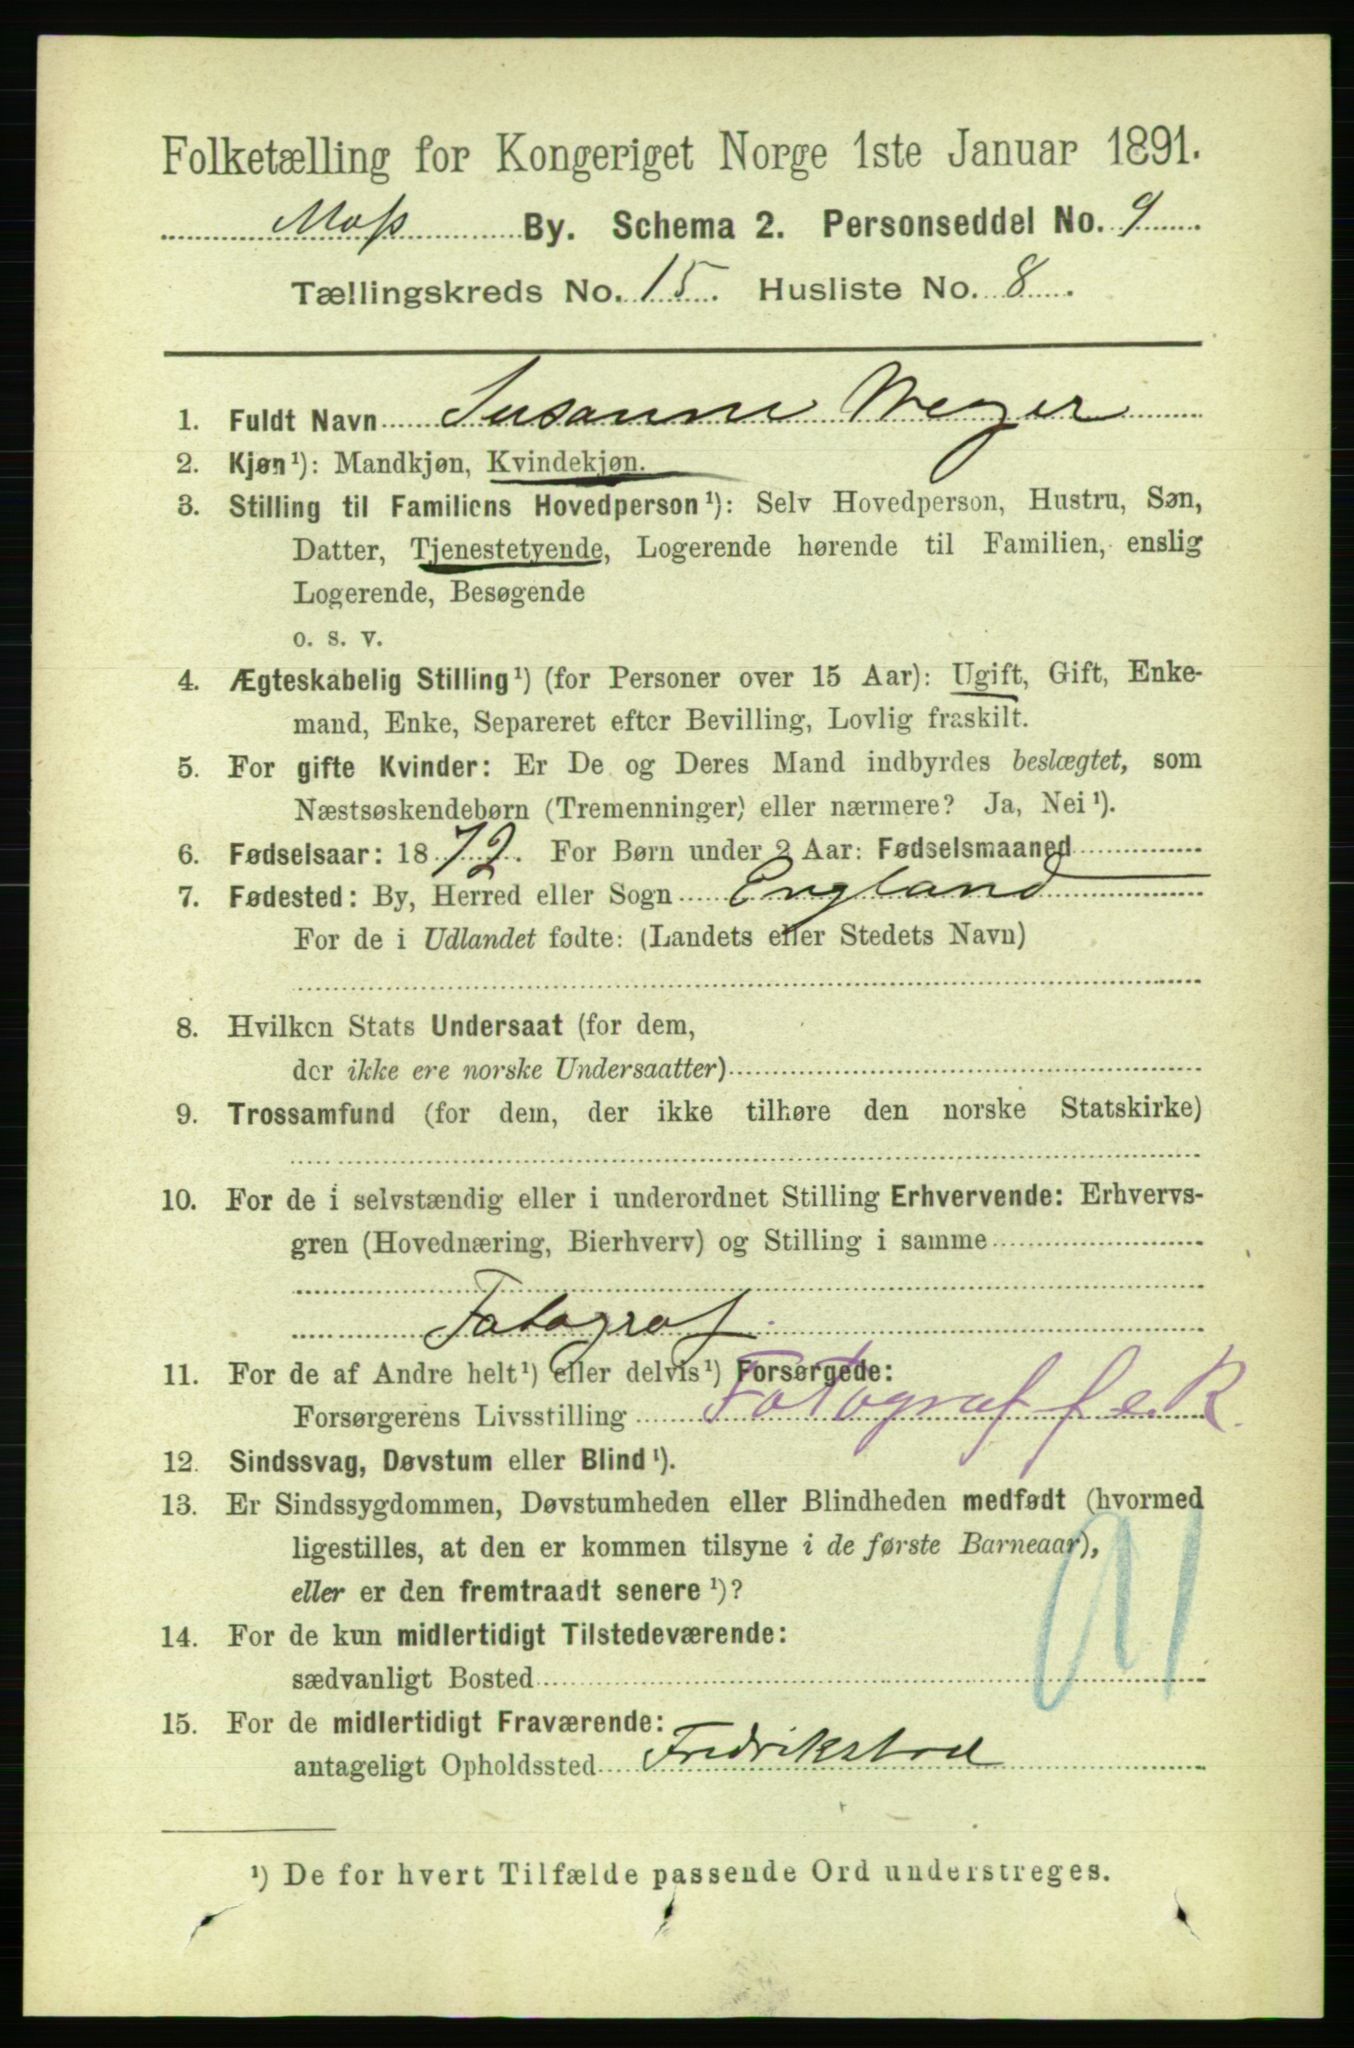 Folketælling for Kongeriget Norge 1ste Januar 1891.
Moss By. Schema 2. Personseddel No. 9
Tællingskreds No. 15. Husliste No. 8.
1. Fuldt Navn Susanne Weyer
2. Kjøn¹): Mandkjøn, Kvindekjøn.
3. Stilling til Familiens Hovedperson¹): Selv Hovedperson, Hustru, Søn,
Datter, Tjenestetyende, Logerende hørende til Familien, enslig
Logerende, Besøgende
o. s. v.
4. Ægteskabelig Stilling¹) (for Personer over 15 Aar): Ugift, Gift, Enke-
mand, Enke, Separeret efter Bevilling, Lovlig fraskilt.
5. For gifte Kvinder: Er De og Deres Mand indbyrdes beslægtet, som
Næstsøskendebørn (Tremenninger) eller nærmere? Ja, Nei¹).
6. Fødselsaar: 1872. For Børn under 2 Aar: Fødselsmaaned
7. Fødested: By, Herred eller Sogn England
For de i Udlandet fødte: (Landets eller Stedets Navn)
8. Hvilken Stats Undersaat (for dem,
der ikke ere norske Undersaatter)
9. Trossamfund (for dem, der ikke tilhøre den norske Statskirke)
10. For de i selvstændig eller i underordnet Stilling Erhvervende: Erhvervs-
gren (Hovednæring, Bierhverv) og Stilling i samme
Fotograf.
11. For de af Andre helt¹) eller delvis¹) Forsørgede:
Forsørgerens Livsstilling Fotograf f.e.R.
12. Sindssvag, Døvstum eller Blind¹).
13. Er Sindssygdommen, Døvstumheden eller Blindheden medfødt (hvormed
ligestilles, at den er kommen tilsyne i de første Barneaar),
eller er den fremtraadt senere¹)?
14. For de kun midlertidigt Tilstedeværende:
sædvanligt Bosted
15. For de midlertidigt Fraværende:
antageligt Opholdssted Fredrikstad
¹) De for hvert Tilfælde passende Ord understreges.